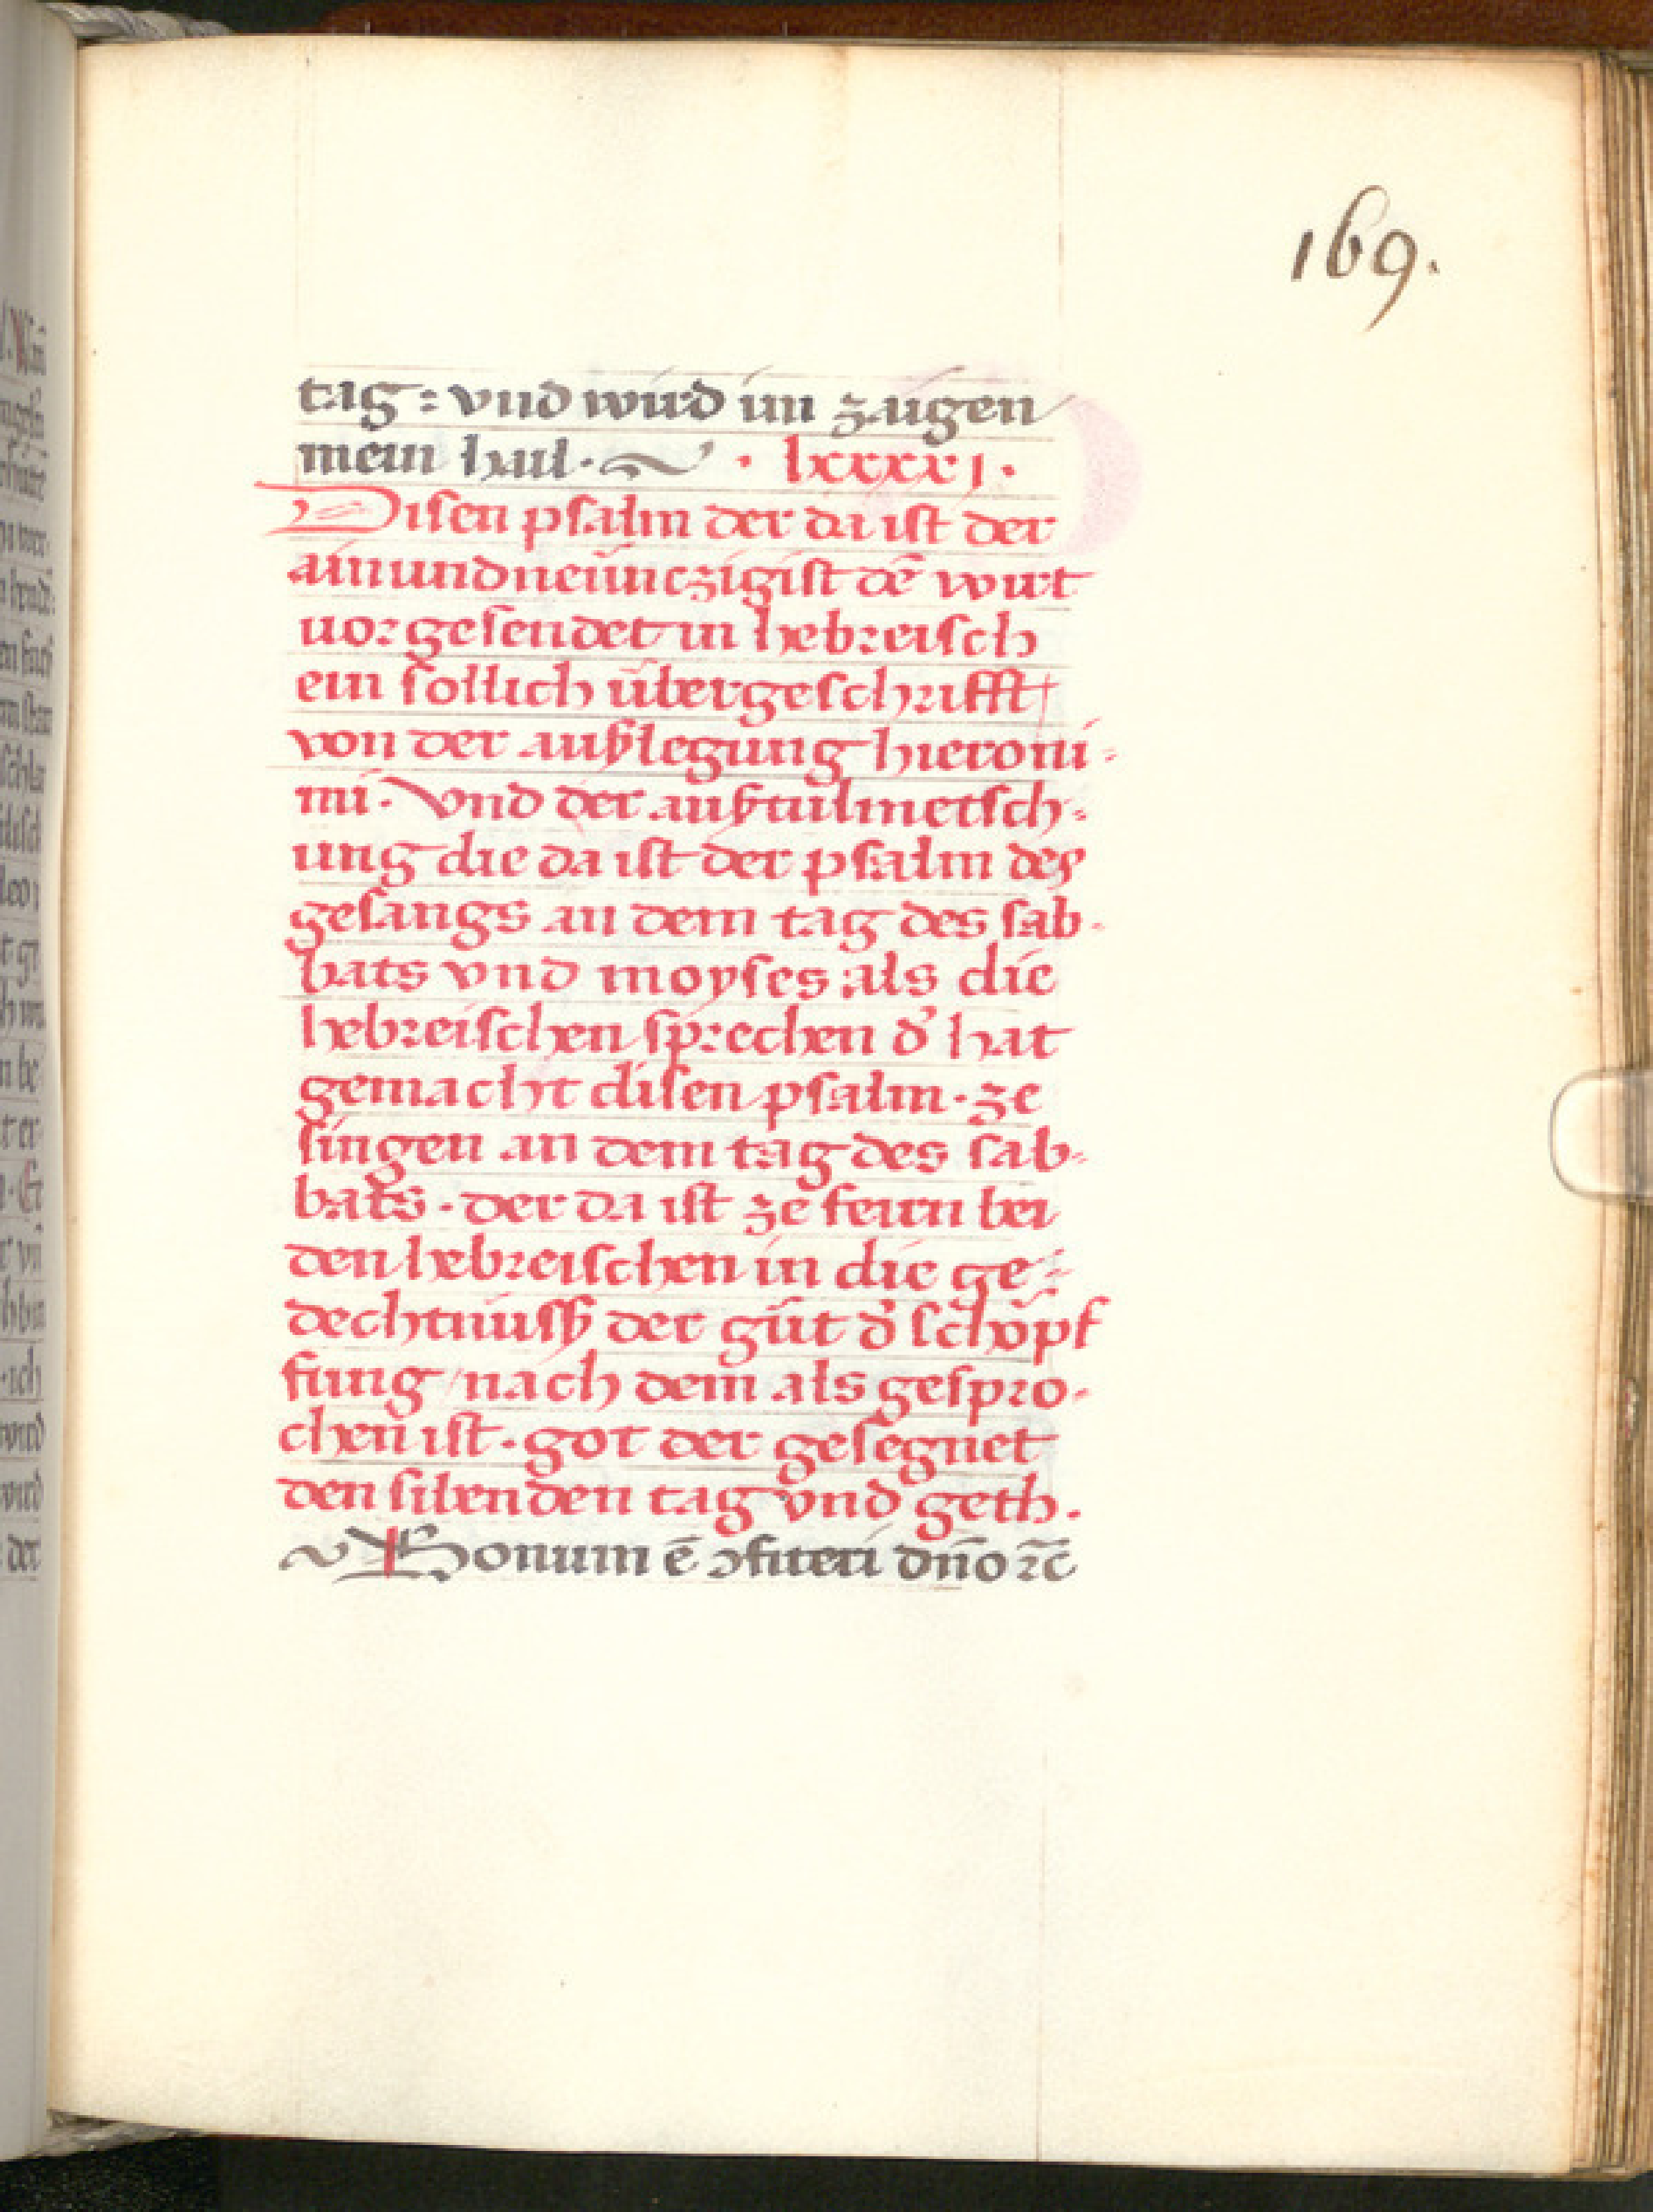 169.
tag : vnd wird im zaigen
mein hail · · lxxxxj ·
Disen psalm der da ist der
ainundneünczigist dē wirt
uorgesendet in hebreisch
ein sollich übergeschrifft
von der außlegung hieroni-
mi · Vnd der außtulmetsch-
ung die da ist der psalm des
gesangs an dem tag des sab-
bats vnd moyses : als die
hebreischen sprechen d' hat
gemacht disen psalm · ze
singen an dem tag des sab-
bats · der da ist ze feirn bei
den hebreischen in die ge-
dechtnuß der güt d' schöpf
fung / nach dem als gespro-
chen ist · got der gesegnet
den sibenden tag vnd geth.
Bonum ē ꝯfiteri dn̄o ⁊c̄